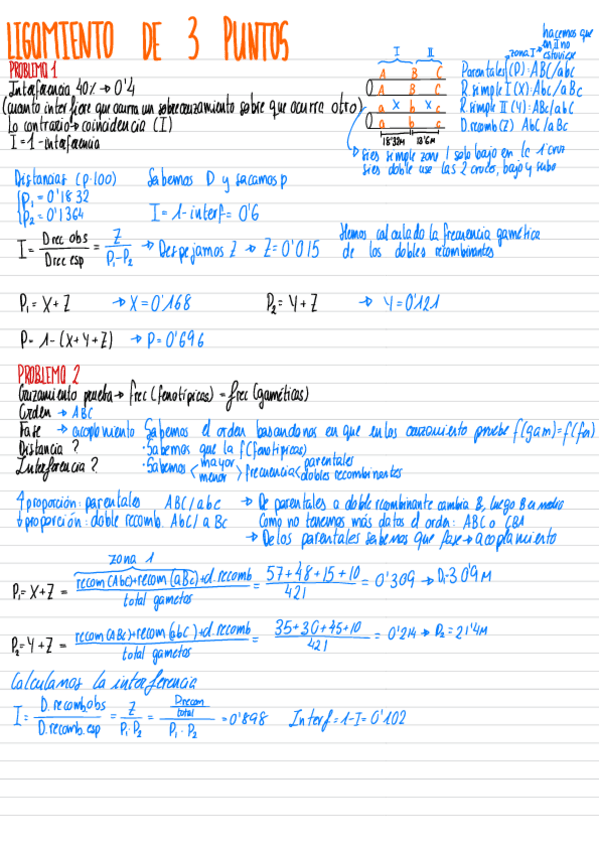 LIGAMIENTO DE 3 PUNTOS
hacemos que en II no estuviese
PROBLEMA 1
Interferencia 40% → 0'4
(cuanto interfiere que ocurra un sobrecruzamiento sobre que ocurre otro)
Lo contrario → coincidencia (I)
I = 1 - interferencia
I II
A B C
A B C
a x b x c
a b c
18'32M 13'6M
zona I
Parentales (P): ABC/abc
R. simple I (X): Abc/aBc
R. simple II (Y): ABc/abC
D. recomb (Z) AbC/aBc
si es simple zona 1 solo bajo en la 1ª cruz
si es doble use las 2 cruces, bajo y subo
Distancias (p·100) Sabemos D y sacamos p
P₁ = 0'1832
P₂ = 0'1364
I = 1 - interf = 0'6
I = Drec obs / Drec esp = Z / P₁·P₂ → Despejamos Z → Z = 0'015
Hemos calculado la frecuencia gamética
de los dobles recombinantes
P₁ = X + Z → X = 0'168 P₂ = Y + Z → Y = 0'121
P = 1 - (X + Y + Z) → P = 0'696
PROBLEMA 2
Cruzamiento prueba → frec (fenotípicas) = frec (gaméticas)
Orden → ABC
Fase → acoplamiento Sabemos el orden basandonos en que en los cruzamiento prueba f(gam) = f(fen)
Distancia? · Sabemos que la f(fenotípicas)
Interferencia? · Sabemos < mayor menor > frecuencia < parentales dobles recombinantes
↑ proporción: parentales ABC/abc → De parentales a doble recombinante cambia B, luego B en medio
↓ proporción: doble recomb. AbC/aBc Como no tenemos más datos el orden: ABC o CBA
→ De los parentales sabemos que fase → acoplamiento
zona 1
P₁ = X + Z = recom (Abc) + recom (aBC) + d. recomb / total gametos = 57 + 48 + 15 + 10 / 421 = 0'309 → D₁ = 30'9M
P₂ = Y + Z = recom (ABc) + recom (abC) + d. recomb / total gametos = 35 + 30 + 15 + 10 / 421 = 0'214 → D₂ = 21'4M
Calculamos la interferencia
I = D. recomb obs / D. recomb. esp = Z / P₁·P₂ = Drecom / total / P₁·P₂ = 0'898 Interf = 1 - I = 0'102